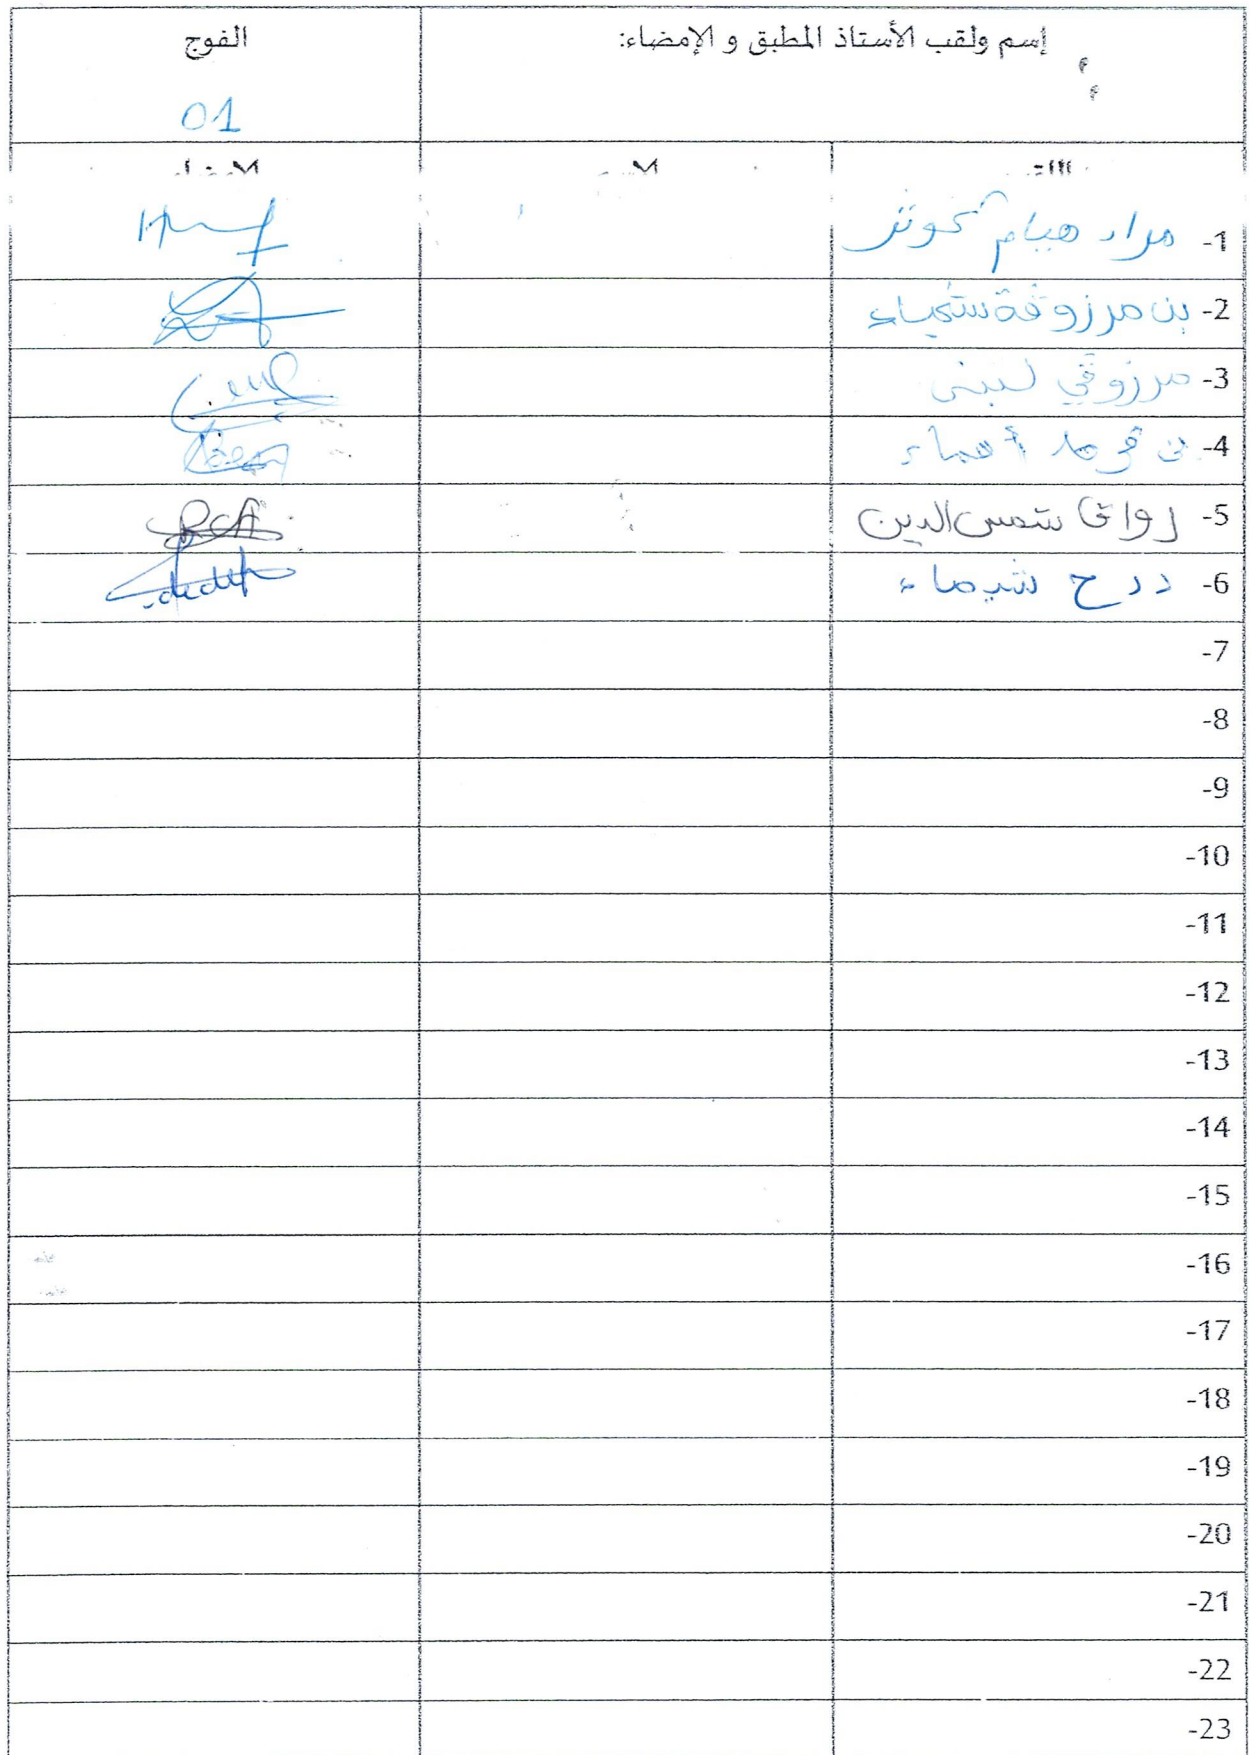 إسم ولقب الأستاذ المطبق و الإمضاء: الفوج
01
-1 مراد هيام كوثر
-2 بن مرزوقة شيماء
-3 مرزوقي لبنى
-4 أسماء
-5 شمس الدين
-6 درح شيماء
-7
-8
-9
-10
-11
-12
-13
-14
-15
-16
-17
-18
-19
-20
-21
-22
-23